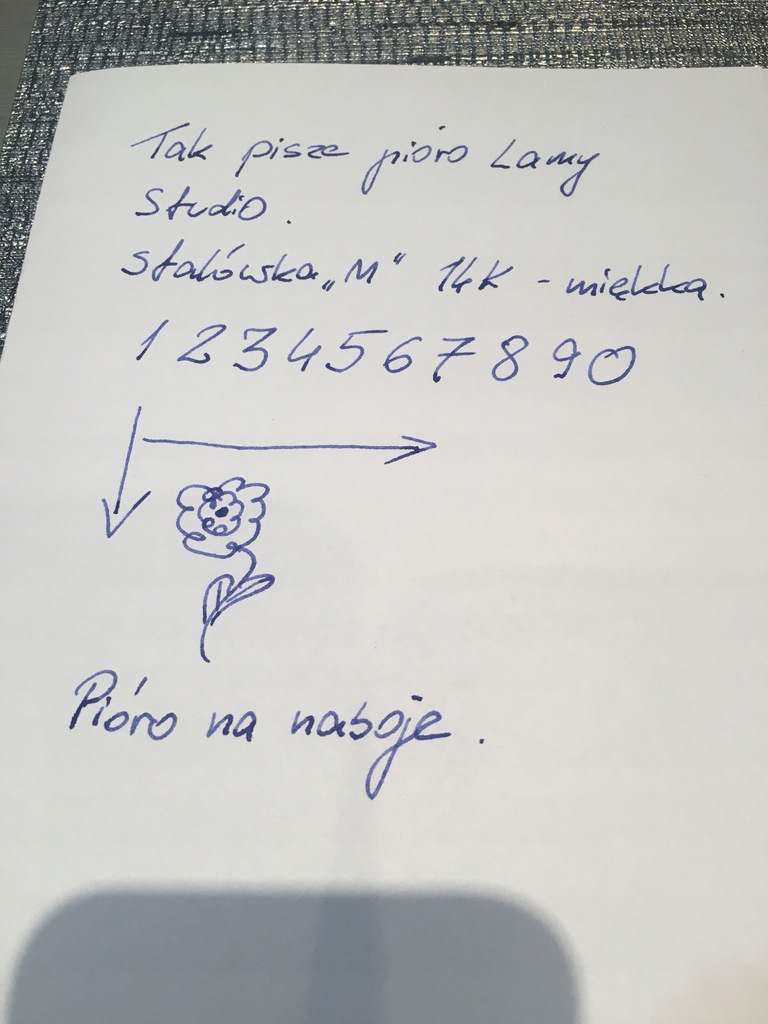 Tak pisze pióro Lamy
Studio.
Stalówka „M" 14K - miękka.
1 2 3 4 5 6 7 8 9 0
Pióro na naboje.